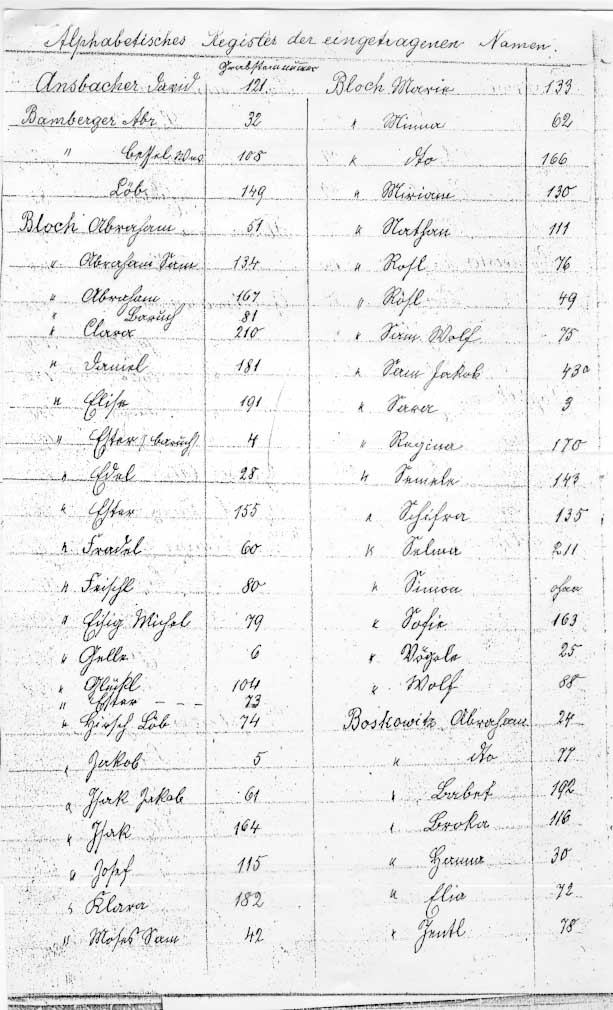 Alphabetisches Register der eingetragenen Namen.
Grabsteinnummer
Ansbacher David 121
Bamberger Abr 32
" Bessel Wwe 105
Löb 149
Bloch Abraham 51
" Abraham Sam 134
" Abraham 167
" Baruch 81
" Clara 210
" Daniel 181
" Elise 191
" Ester (Baruch) 4
" Edel 28
" Ester 155
" Fradel 60
" Feischl 80
" Eisig Michel 79
" Gelle 6
" Glückl 104
" Ester - - - 73
" Hirsch Löb 74
" Jakob 5
" Isak Jakob 61
" Isak 164
" Josef 115
" Klara 182
" Moses Sam 42
Bloch Marie 133
" Minna 62
" dto 166
" Miriam 130
" Nathan 111
" Rosl 76
" Rösl 49
" Sam. Wolf 75
" Sam Jakob 43a
" Sara 3
" Regina 170
" Semele 143
" Schifra 135
" Selma 211
" Simon ohne
" Sofie 163
" Vögele 25
" Wolf 88
Boskowitz Abraham 24
" dto 77
" Babet 192
" Broka 116
" Hanna 30
" Elia 72
" Jentl 78